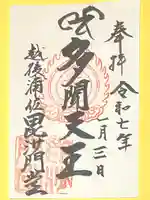 奉拝
令和七年
七月三日
多聞天王
越後浦佐
毘沙門堂